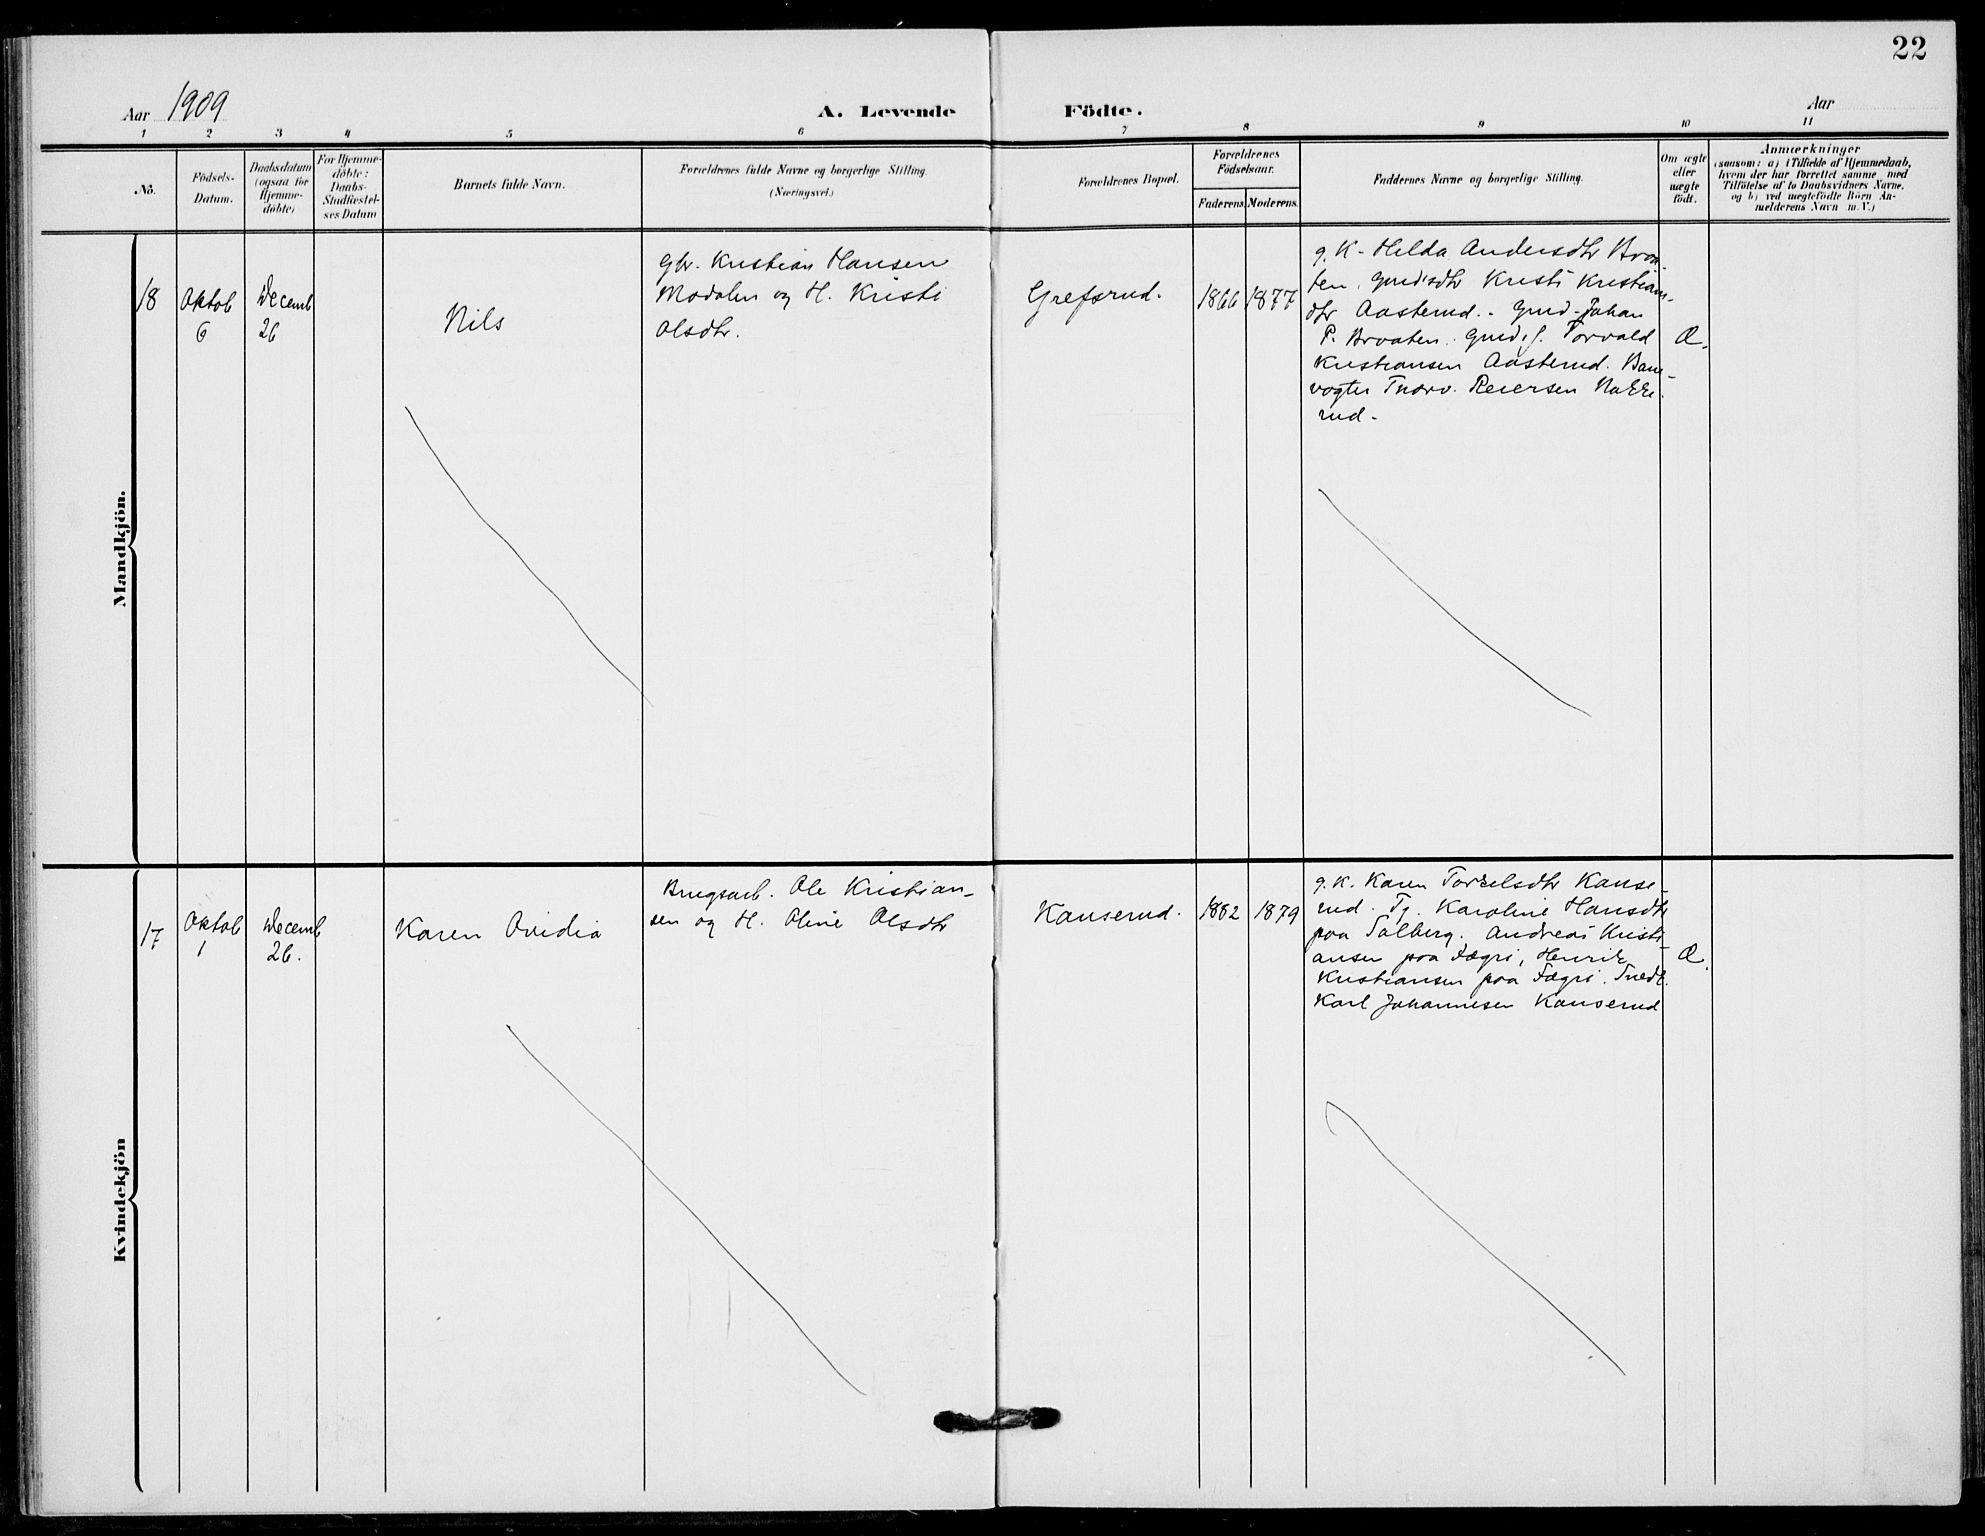 22
Aar 1909
A. Levende Födte.
Aar
1 2 3 4 5 6 7 8 9 10 11
No.
Födsels-
Datum.
Daabsdatum
(ogsaa for
Hjemme-
döbte)
For Hjemme-
döbte:
Daabs-
Stadfæstel-
ses Datum
Barnets fulde Navn.
Forældrenes fulde Navne og borgerlige Stilling.
(Næringsvei.)
Forældrenes Bopæl.
Forældrenes
Födselsaar.
Faderens. Moderens.
Faddernes Navne og borgerlige Stilling.
Om ægte
eller
uægte
födt.
Anmærkninger
(saasom: a) i Tilfælde af Hjemmedaab,
hvem der har forrettet samme med
Tilföielse af to Daabsvidners Navne.
og b) ved uægtefödte Börn An-
melderens Navn m.V.)
Mandkjön.
18
Oktob
6
Decemb
26
Nils
Gbr. Kristian Hansen
Modalen og H. Kristi
Olsdtr.
Grefsrud.
1866 1877
g. K. Helda Andersdtr Braa-
ten, Gmd'sdtr Kristi Kristians-
dtr Aasterud. Gmd. Johan
P. Braaten. Gmd.s. Torvald
Kristiansen Aasterud. Bane-
vogter Thorv. Reiersen Nakke-
rud.
Æ.
Kvindekjön
17
Oktob
1
Decemb
26.
Karen Ovidia
Brugsarb. Ole Kristian-
sen og H. Oline Olsdtr
Kanserud.
1882 1879
g. K. Karen Torkelsdtr Kanse-
rud. Tj. Karoline Hansdtr
paa Solberg. Andreas Kristi-
ansen paa Fægri, Henrik
Kristiansen paa Fægri.
Karl Johannesen Kanserud
Æ.